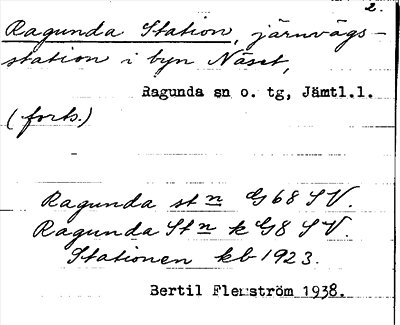 2.
Ragunda Station, järnvägs-
station i byn Näset,
Ragunda sn o. tg, Jämtl.l.
(forts.)
Ragunda stn G68 SV.
Ragunda Stn k G8 SV.
Stationen kb 1923.
Bertil Flemström 1938.